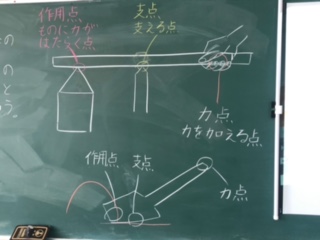 作用点
ものに力が
はたらく点
支点
支える点
力点
力を加える点
作用点
支点
力点